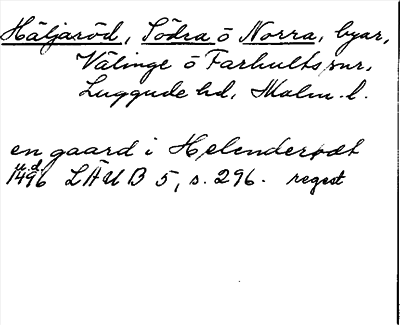 Häljaröd, Södra o Norra, byar,
Välinge o Farhults snr,
Luggude hd, Malm. l.
en gaard i Helenderødt
u.d.
1496 LÄUB 5, s. 296. regest